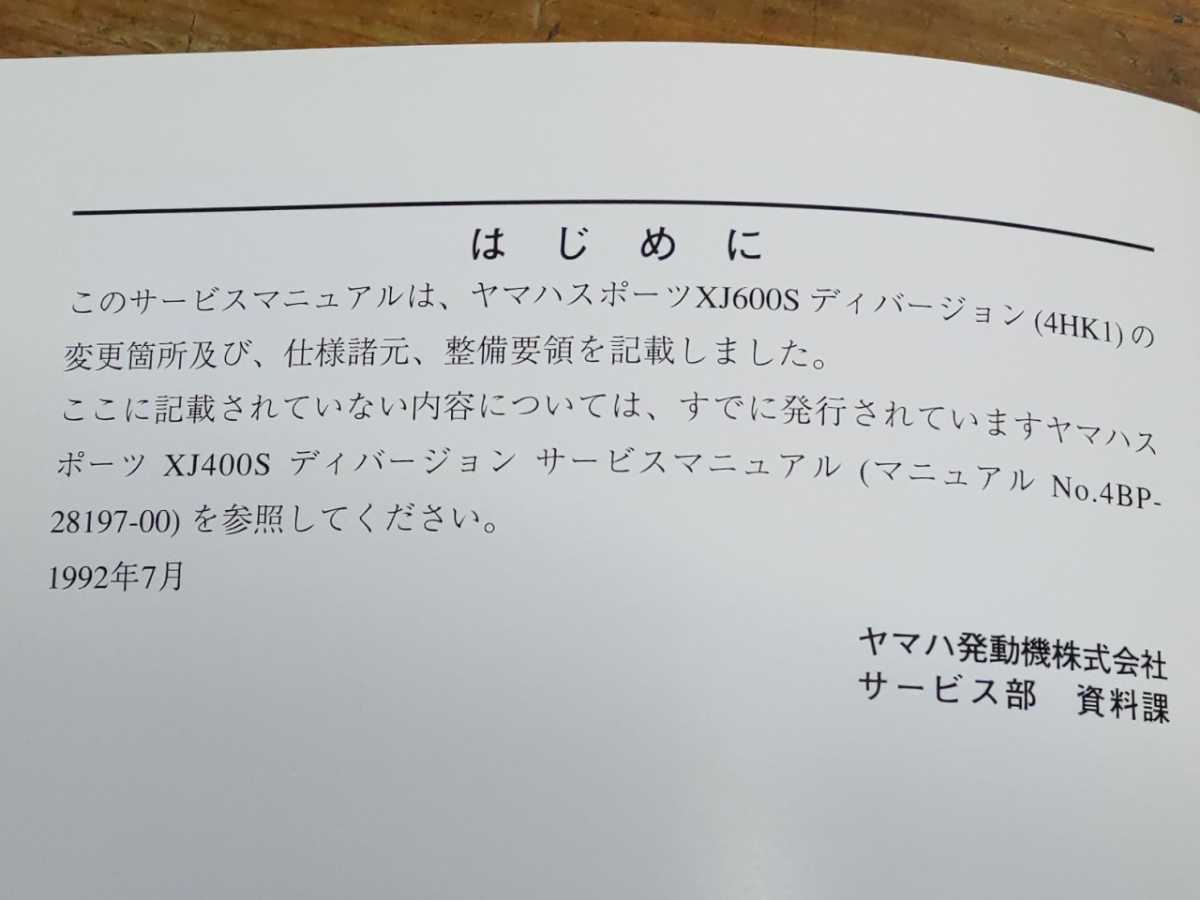 はじめに
このサービスマニュアルは、ヤマハスポーツXJ600S ディバージョン (4HK1) の
変更箇所及び、仕様諸元、整備要領を記載しました。
ここに記載されていない内容については、すでに発行されていますヤマハス
ポーツ XJ400S ディバージョン サービスマニュアル (マニュアル No.4BP-
28197-00) を参照してください。
1992年7月
ヤマハ発動機株式会社
サービス部　資料課